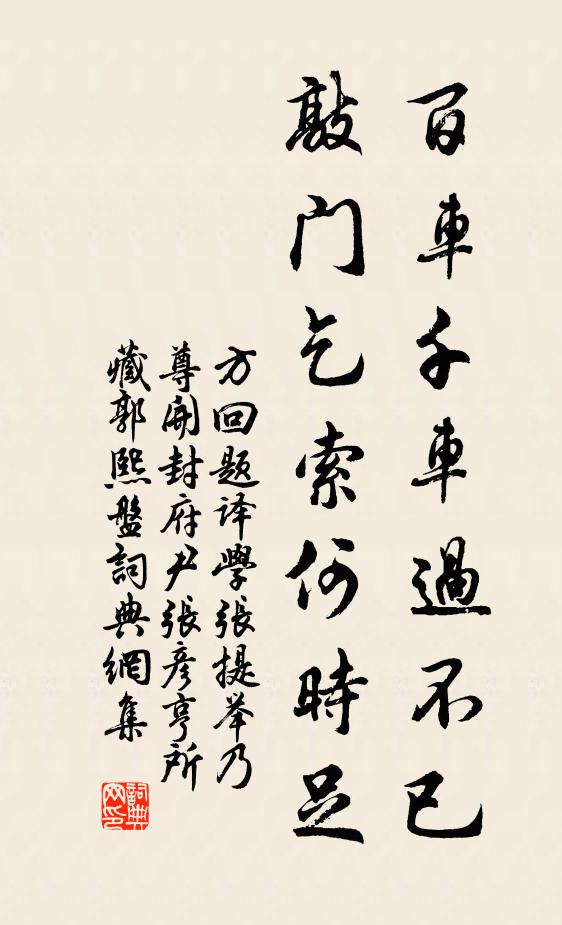 百車千車過不已
敲门乞索何時足
方回题译學張提举乃
尊開封府尹張彦亨所
藏郭熙盤詞典網集
詞典
网印